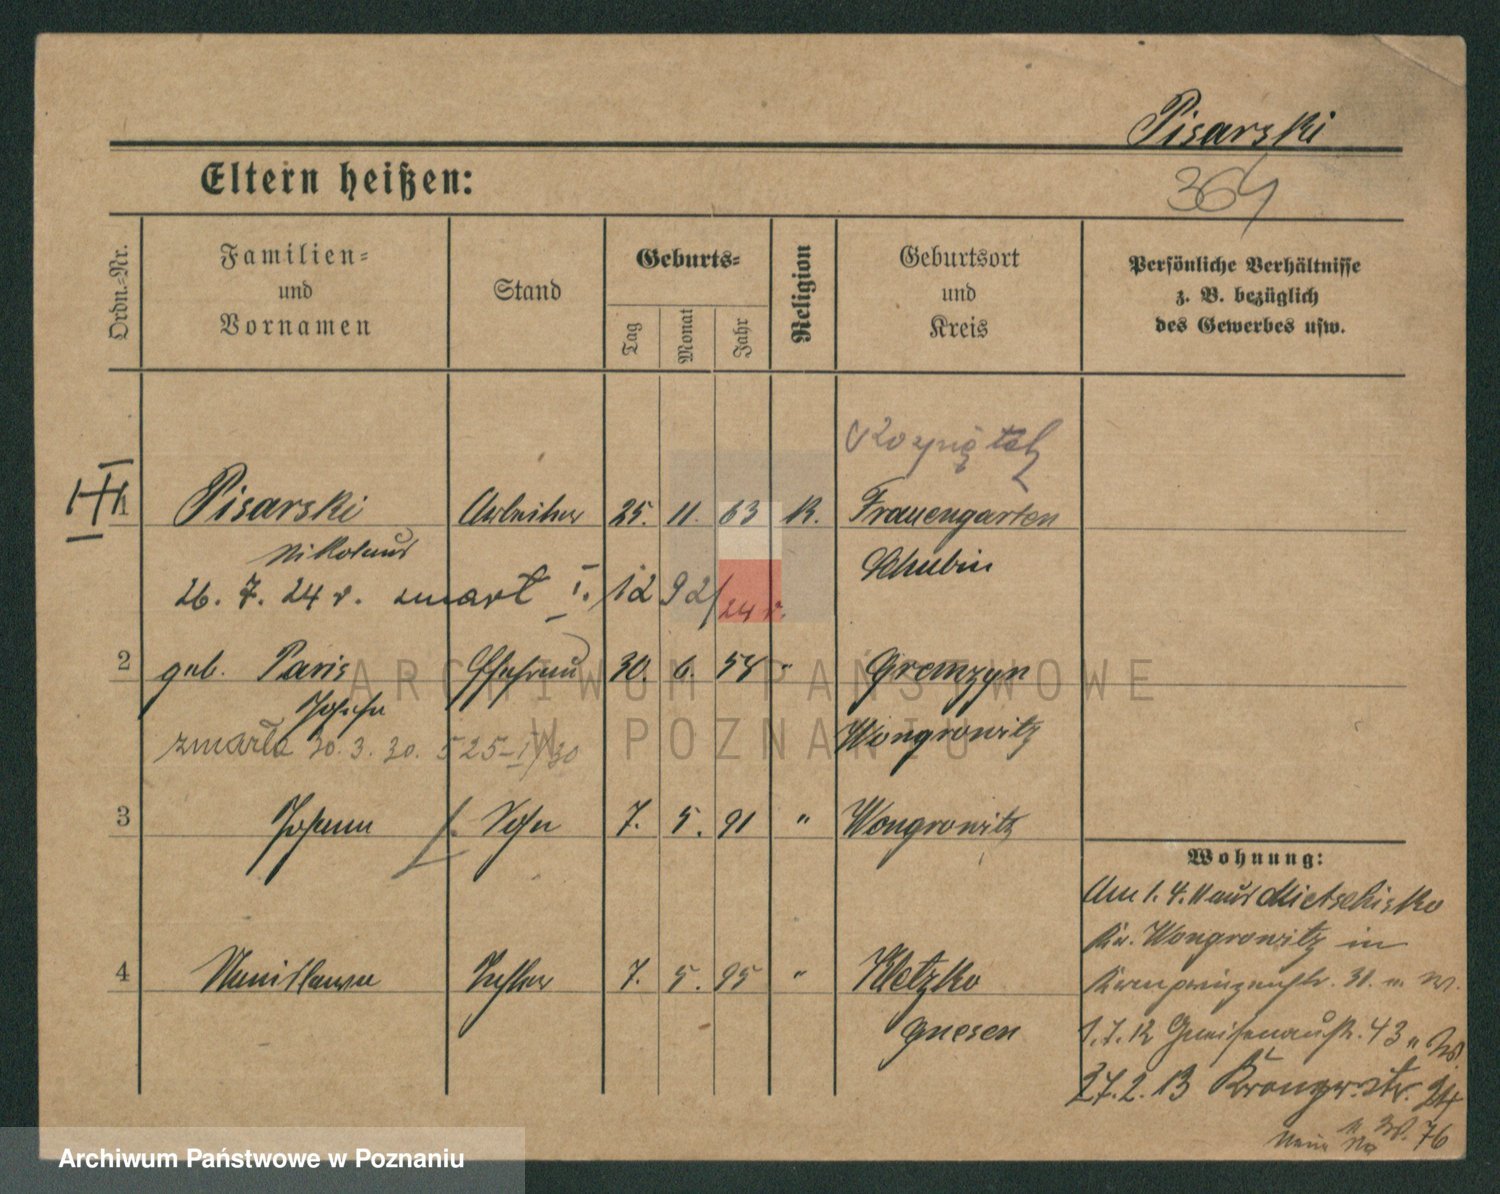 Pisarski
364
Eltern heißen:
Ordn.-Nr.
Familien-
und
Vornamen
Stand
Geburts-
Tag
Monat
Jahr
Religion
Geburtsort
und
Kreis
Persönliche Verhältnisse
z. B. bezüglich
des Gewerbes usw.
1 Pisarski Arbeiter 25. 11. 63 K. Frauengarten
Nikolaus Schubin
26. 7. 24 r. zmarł I. 1292/24 r.
2 geb. Paris Ehefrau 30. 6. 58 " Gremzyn
Josefa Wongrowitz
zmarła 30. 3. 30. 525-I/30
3 Johann Sohn 7. 5. 91 " Wongrowitz
4 Stanislawa Tochter 7. 5. 95 " Kletzko
Gnesen
Wohnung:
Am 1. 4. 11 aus Mietschisko
Kr. Wongrowitz in
Kronprinzenstr. 31.
1.7.12 Gneisenaustr. 43
27.2.13 Kronprz.str.
76
ARCHIWUM PAŃSTWOWE
W POZNANIU
Archiwum Państwowe w Poznaniu